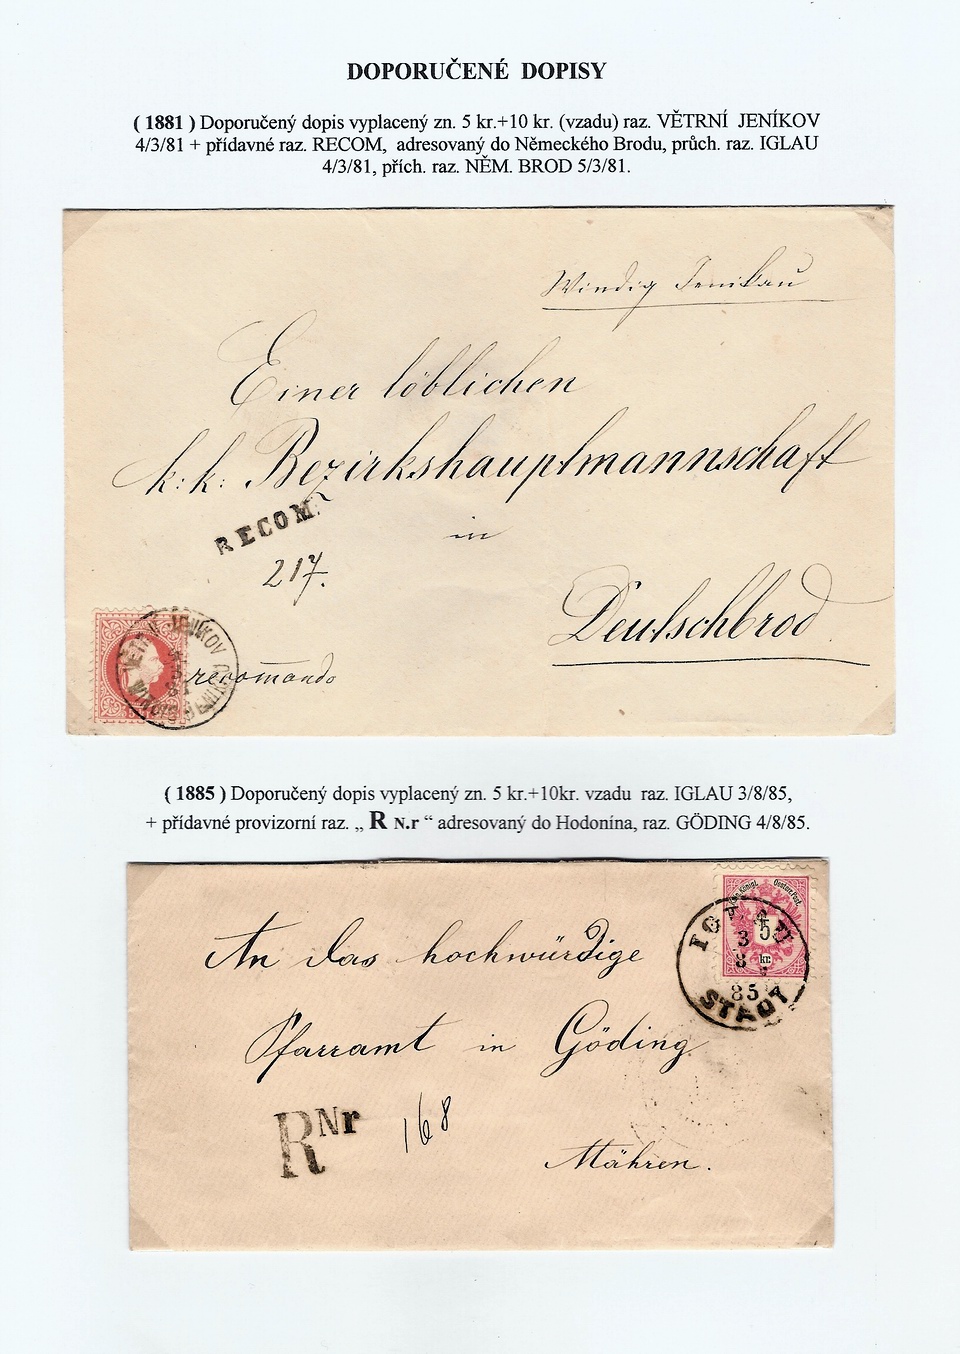 DOPORUČENÉ DOPISY
( 1881 ) Doporučený dopis vyplacený zn. 5 kr.+10 kr. (vzadu) raz. VĚTRNÍ JENÍKOV
4/3/81 + přídavné raz. RECOM, adresovaný do Německého Brodu, průch. raz. IGLAU
4/3/81, přích. raz. NĚM. BROD 5/3/81.
Windig Jenikau
Einer löblichen
k: k: Bezirkshauptmannschaft
RECOM.
in
217.
Deutschbrod
recomando
( 1885 ) Doporučený dopis vyplacený zn. 5 kr.+10kr. vzadu raz. IGLAU 3/8/85,
+ přídavné provizorní raz. „ R N.r “ adresovaný do Hodonína, raz. GÖDING 4/8/85.
An das hochwürdige
IGLAU
3
8
85
STADT
5
kr.
Pfarramt in Göding
R Nr 168
Mähren.